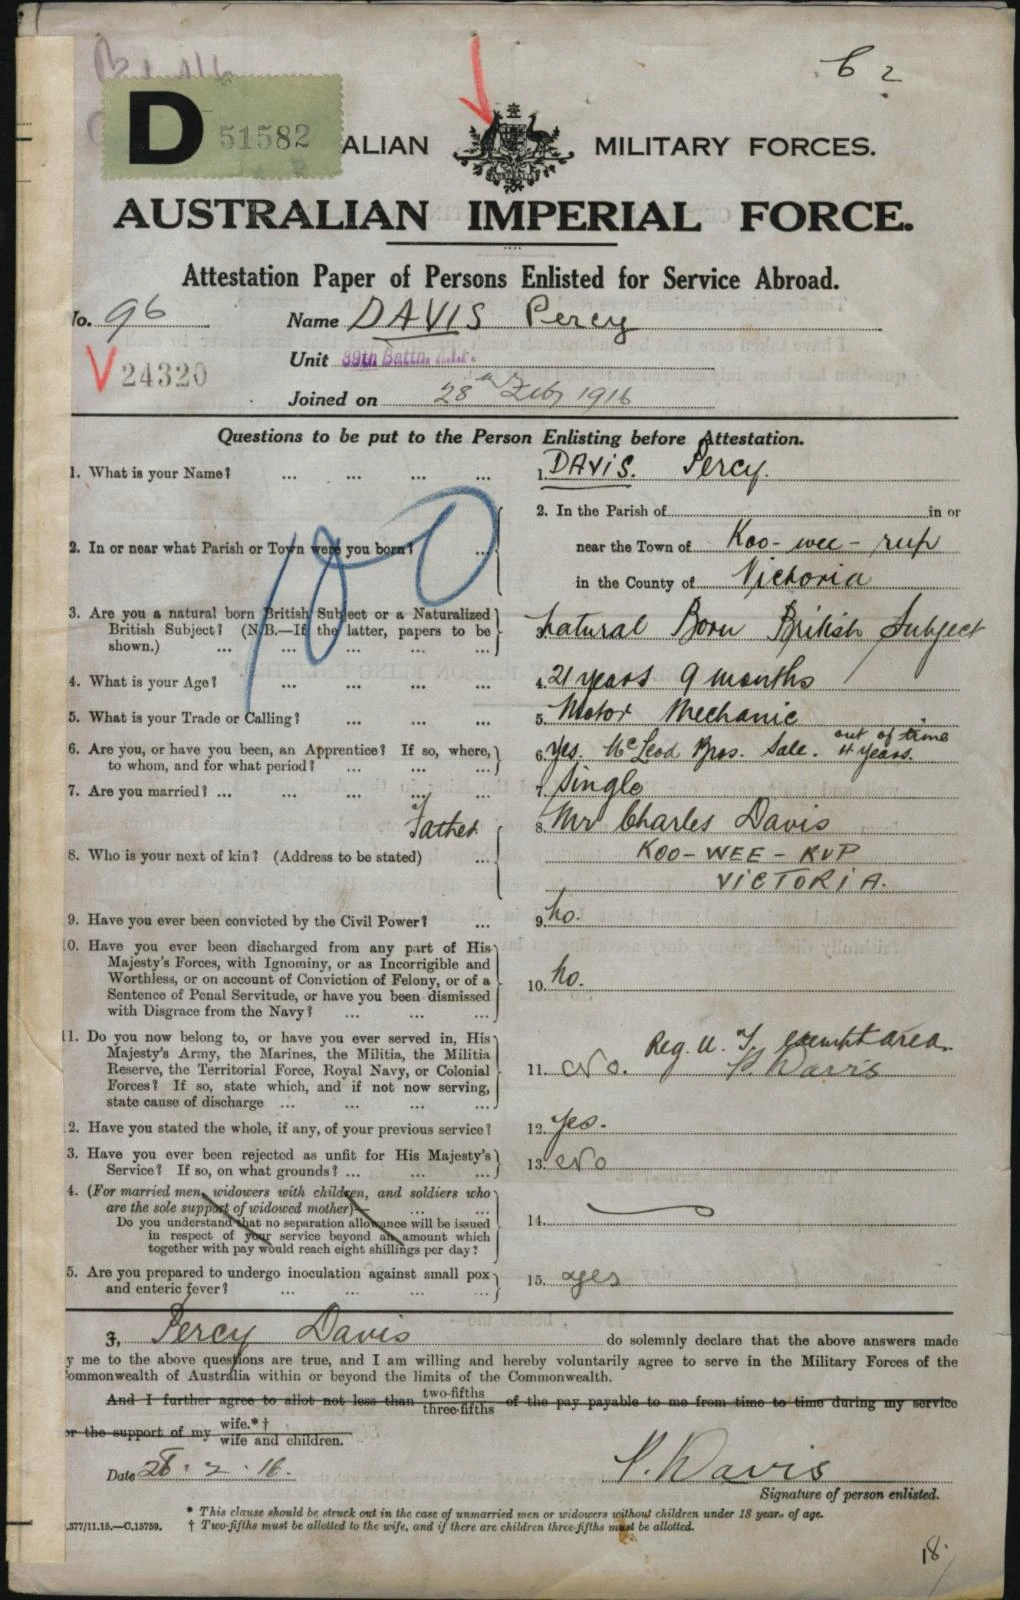 6 2
D 51582
ALIAN MILITARY FORCES.
AUSTRALIAN IMPERIAL FORCE.
Attestation Paper of Persons Enlisted for Service Abroad.
No. 96 Name DAVIS Percy
Unit 39th Battn. A.I.F.
V 24320
Joined on 28th Feby 1916
Questions to be put to the Person Enlisting before Attestation.
1. What is your Name? ... ... ... ... 1. DAVIS. Percy.
2. In or near what Parish or Town were you born? ... 2. In the Parish of in or
near the Town of Koo-wee-rup
in the County of Victoria
100
3. Are you a natural born British Subject or a Naturalized
British Subject? (N.B.—If the latter, papers to be
shown.) ... ... ... ... ...
3. Natural Born British Subject
4. What is your Age? ... ... ... ... 4. 21 years 9 months
5. What is your Trade or Calling? ... ... ... 5. Motor Mechanic
6. Are you, or have you been, an Apprentice? If so, where,
to whom, and for what period? ... ... ...
6. Yes. McLeod Bros. Sale. 4 years. out of time
7. Are you married? ... ... ... ... ... 7. Single
Father
8. Who is your next of kin? (Address to be stated) ...
8. Mr Charles Davis
KOO-WEE-RUP
VICTORIA.
9. Have you ever been convicted by the Civil Power? ... 9. no.
0. Have you ever been discharged from any part of His
Majesty's Forces, with Ignominy, or as Incorrigible and
Worthless, or on account of Conviction of Felony, or of a
Sentence of Penal Servitude, or have you been dismissed
with Disgrace from the Navy? ... ... ...
10. no.
11. Do you now belong to, or have you ever served in, His
Majesty's Army, the Marines, the Militia, the Militia
Reserve, the Territorial Force, Royal Navy, or Colonial
Forces? If so, state which, and if not now serving,
state cause of discharge ... ... ... ...
Reg. U. T. exempt area.
11. No. P. Davis
2. Have you stated the whole, if any, of your previous service? 12. Yes.
3. Have you ever been rejected as unfit for His Majesty's
Service? If so, on what grounds? ... ... ...
13. No
4. (For married men, widowers with children, and soldiers who
are the sole support of widowed mother)— ... ...
Do you understand that no separation allowance will be issued
in respect of your service beyond an amount which
together with pay would reach eight shillings per day?
14.
5. Are you prepared to undergo inoculation against small pox
and enteric fever? ... ... ... ...
15. yes
I, Percy Davis do solemnly declare that the above answers made
y me to the above questions are true, and I am willing and hereby voluntarily agree to serve in the Military Forces of the
ommonwealth of Australia within or beyond the limits of the Commonwealth.
And I further agree to allot not less than two-fifths three-fifths of the pay payable to me from time to time during my service
or the support of my wife.*† wife and children.
Date 28.2.16. P. Davis
Signature of person enlisted.
* This clause should be struck out in the case of unmarried men or widowers without children under 18 years of age.
.377/11.15.—C.15759. † Two-fifths must be allotted to the wife, and if there are children three-fifths must be allotted.
18.